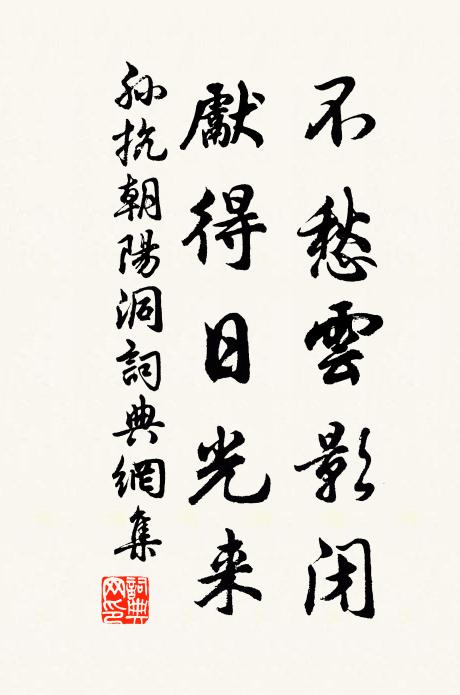 不愁雲影闭
獻得日光来
孙抗朝陽洞詞典網集
詞典网印